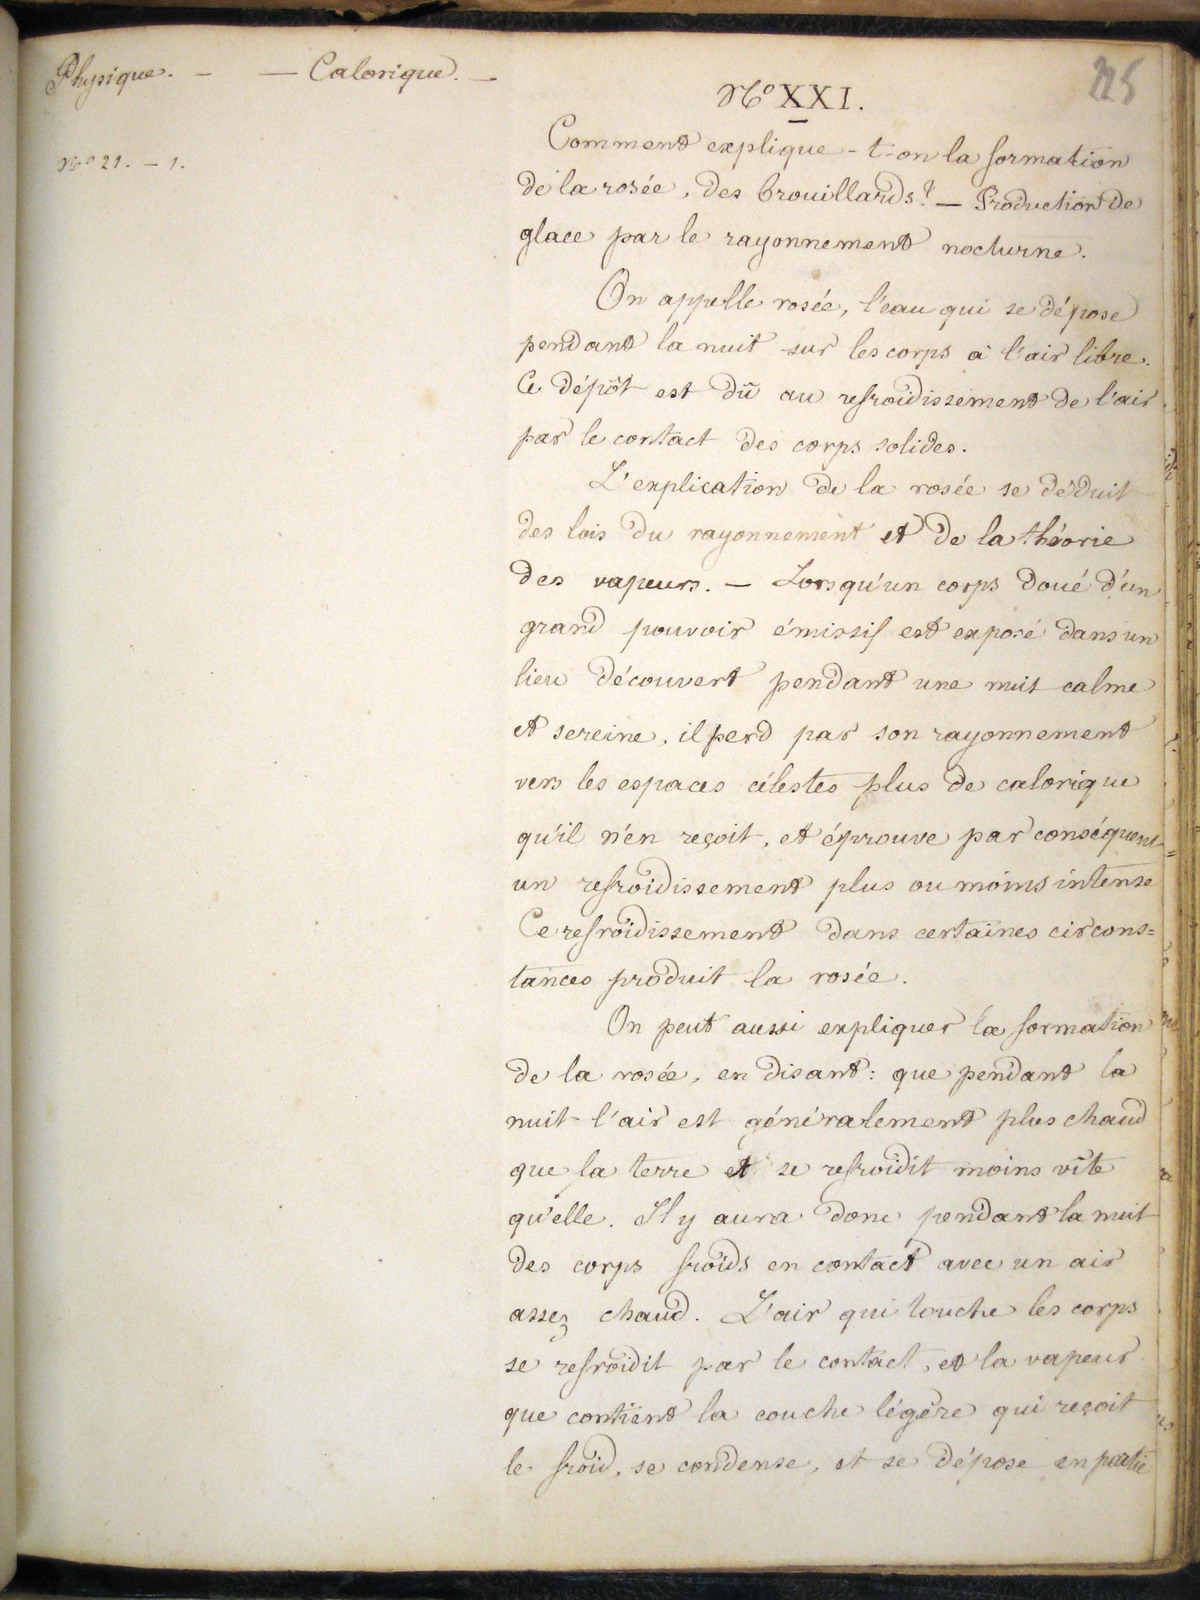 Physique. - - Calorique. -
125
N° XXI.
N° 21. - 1.
Comment explique-t-on la formation
de la rosée, des brouillards? — Production de
glace par le rayonnement nocturne.
On appelle rosée, l'eau qui se dépose
pendant la nuit sur les corps à l'air libre.
Ce dépôt est dû au refroidissement de l'air
par le contact des corps solides.
L'explication de la rosée se déduit
des lois du rayonnement et de la théorie
des vapeurs. — Lorsqu'un corps doué d'un
grand pouvoir émissif est exposé dans un
lieu découvert pendant une nuit calme
et sereine, il perd par son rayonnement
vers les espaces célestes plus de calorique
qu'il n'en reçoit, et éprouve par conséquent
un refroidissement plus ou moins intense
Ce refroidissement dans certaines circons=
tances produit la rosée.
On peut aussi expliquer la formation
de la rosée, en disant: que pendant la
nuit l'air est généralement plus chaud
que la terre et se refroidit moins vîte
qu'elle. Il y aura donc pendant la nuit
des corps froids en contact avec un air
assez chaud. L'air qui touche les corps
se refroidit par le contact, et la vapeur
que contient la couche légère qui reçoit
le froid, se condense, et se dépose en partie